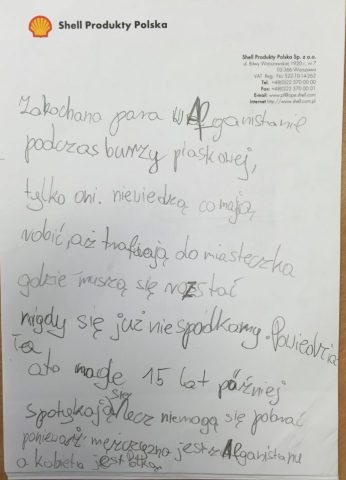 Shell Produkty Polska
Shell Produkty Polska Sp. z o.o.
ul. Bitwy Warszawskiej 1920 r., nr 7
02-366 Warszawa
VAT Reg. No 522-10-14-262
Tel. +48(0)22 570 00 00
Fax: +48(0)22 570 00 01
Internet http://www.shell.com.pl
Zakochana para w Afganistanie
podczas burzy piaskowej,
tylko oni. niewiedzą co mają
robić, aż trafiają do miasteczka
gdzie muszą się rozstać
nigdy się już nie spodkamy. Powiedzia
ła
a to nagle 15 lat później
spotykają się lecz niemogą się pobrać
ponieważ męzczezna jest z Afganistanu
a kobieta jest